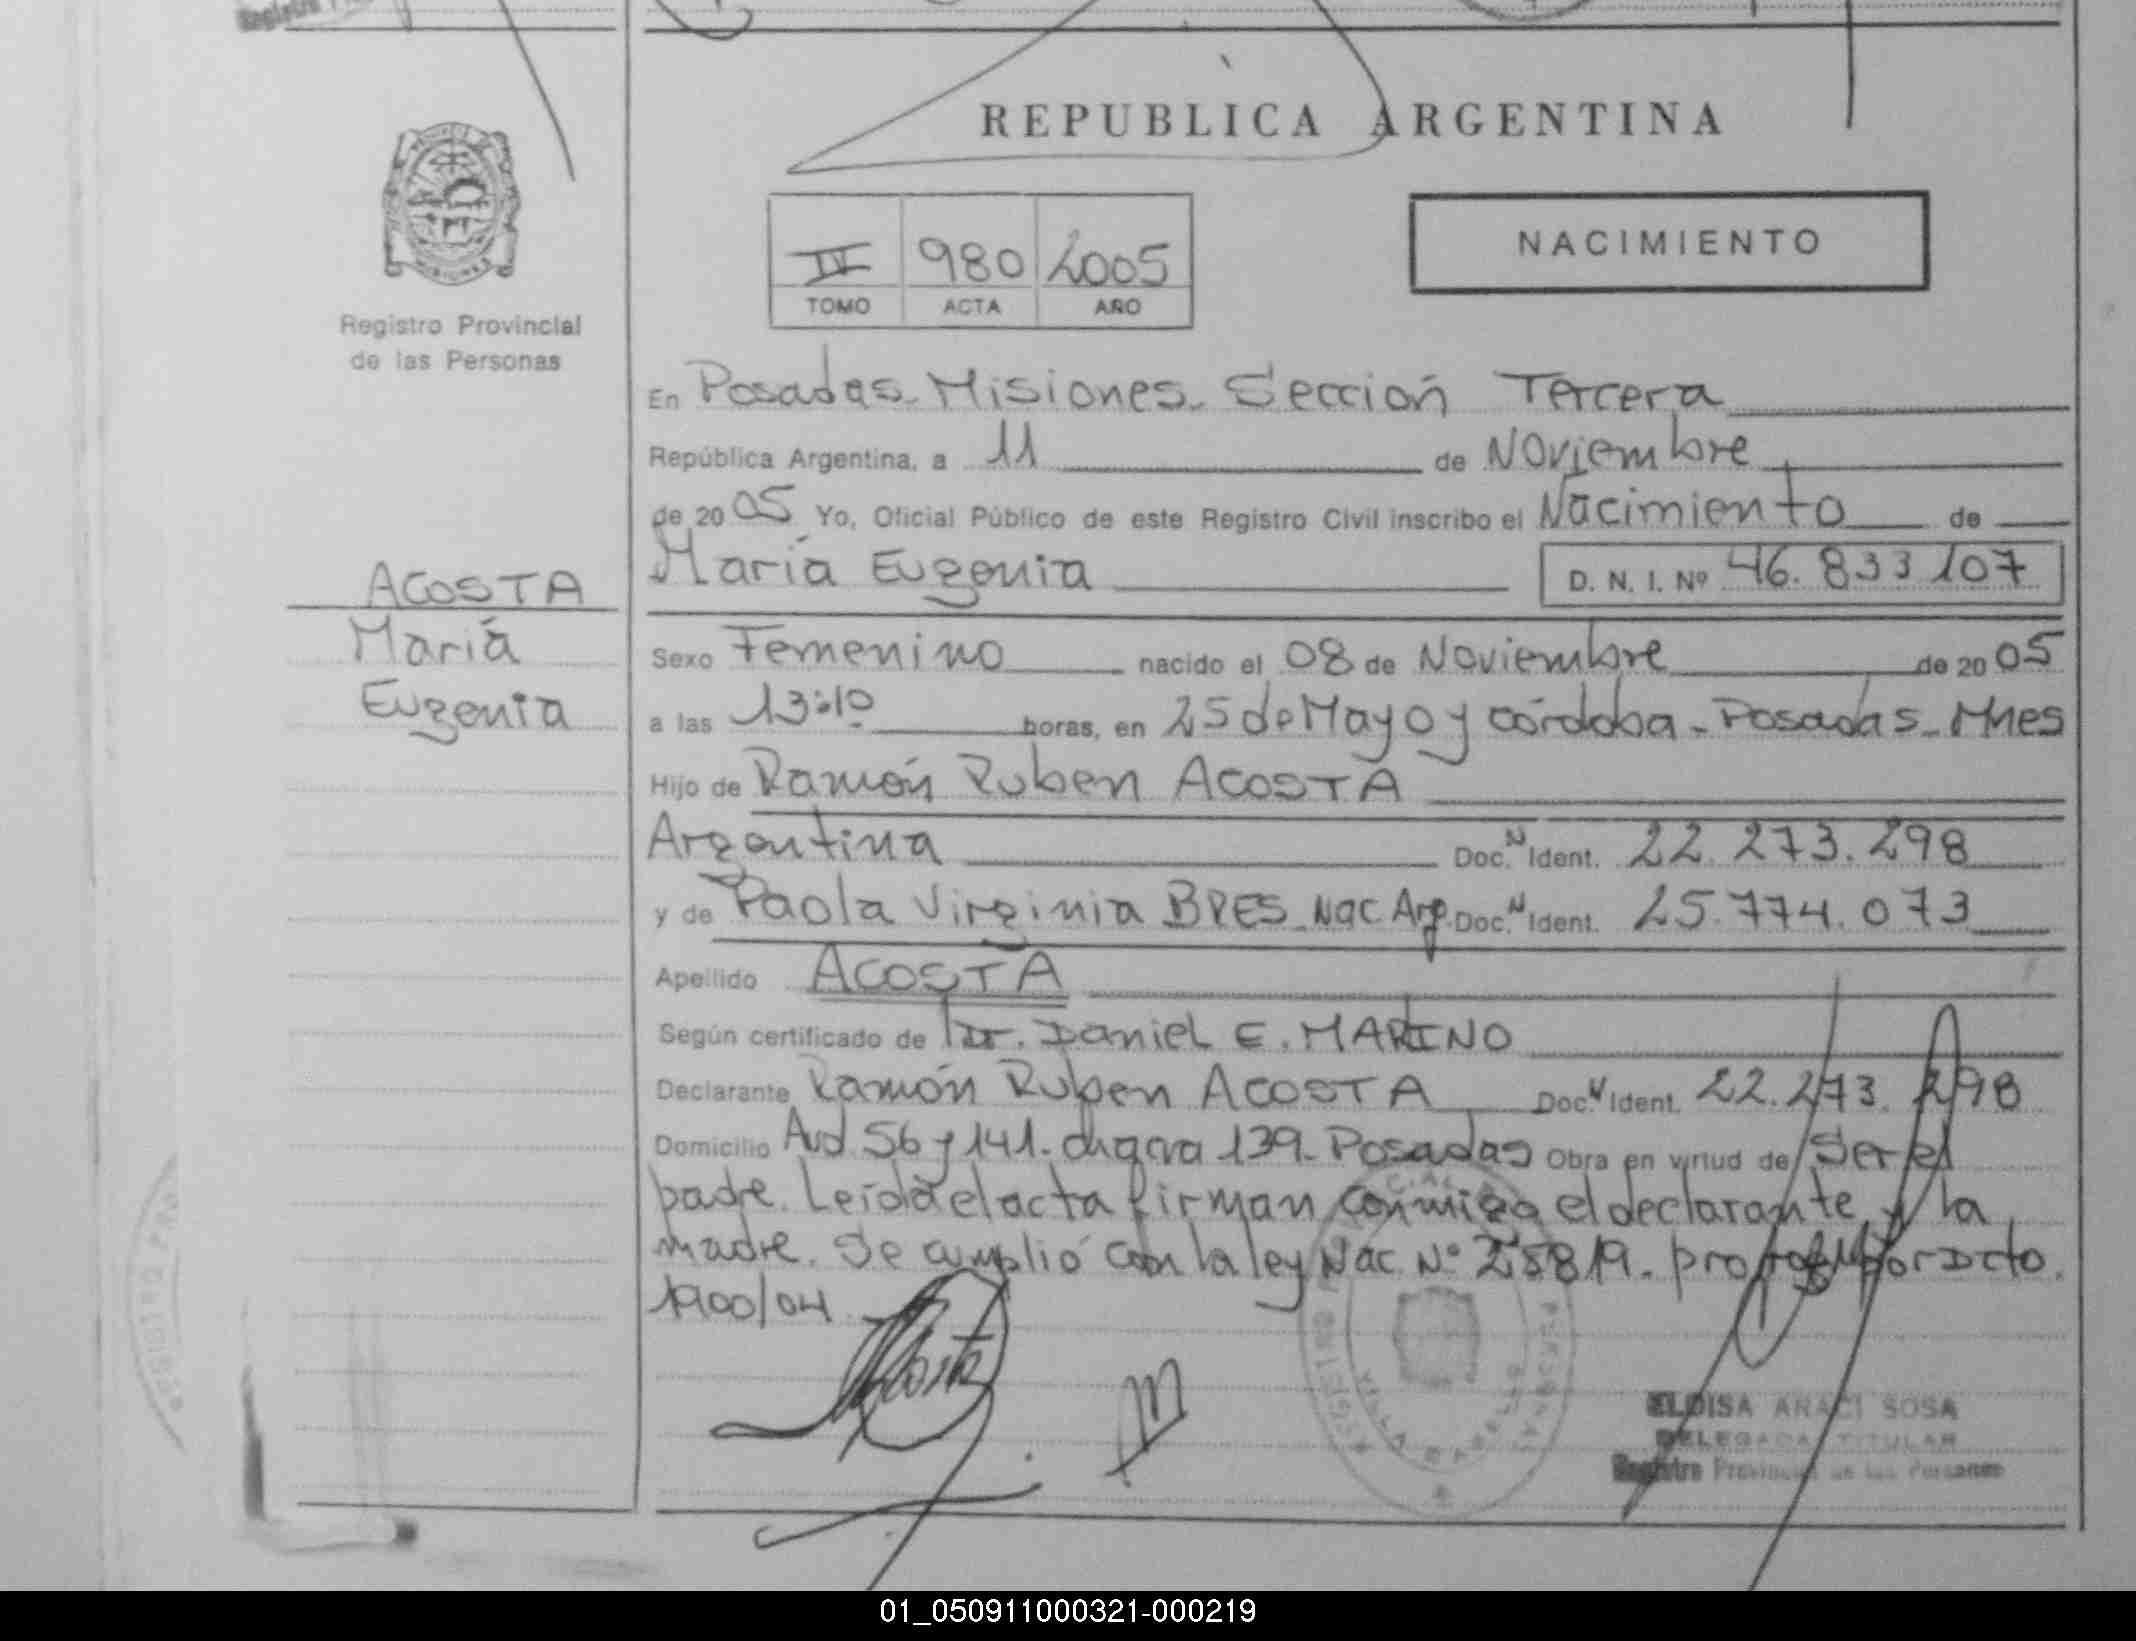 REPUBLICA ARGENTINA
NACIMIENTO
980 2005
TOMO ACTA AÑO
Registro Provincial
de las Personas
ACOSTA
María
Eugenia
En Posadas - Misiones - Sección Tercera
República Argentina, a 11 de Noviembre
de 2005 Yo, Oficial Público de este Registro Civil inscribo el Nacimiento de
María Eugenia D. N. I. Nº 46.833107
Sexo Femenino nacido el 08 de Noviembre de 2005
a las 13:10 horas, en 25 de Mayo y córdoba - Posadas - Mnes
Hijo de Ramón Ruben ACOSTA
Argentina Doc. N Ident. 22.273.298
y de Paola Virginia BRES. Nac Arg. Doc. N Ident. 25.774.073
Apellido ACOSTA
Según certificado de Dr. Daniel E. MARINO
Declarante Ramón Ruben ACOSTA Doc. N Ident. 22.273.298
Domicilio Avd 56 y 141. chacra 139 - Posadas Obra en virtud de Ser el
padre. Leída el acta firman conmigo el declarante y la
madre. Se cumplió con la ley Nac. Nº 25819. por Dcto
1900/04
ELOISA ARACI SOSA
DELEGADA TITULAR
Registro Provincial de las Personas
01_050911000321-000219